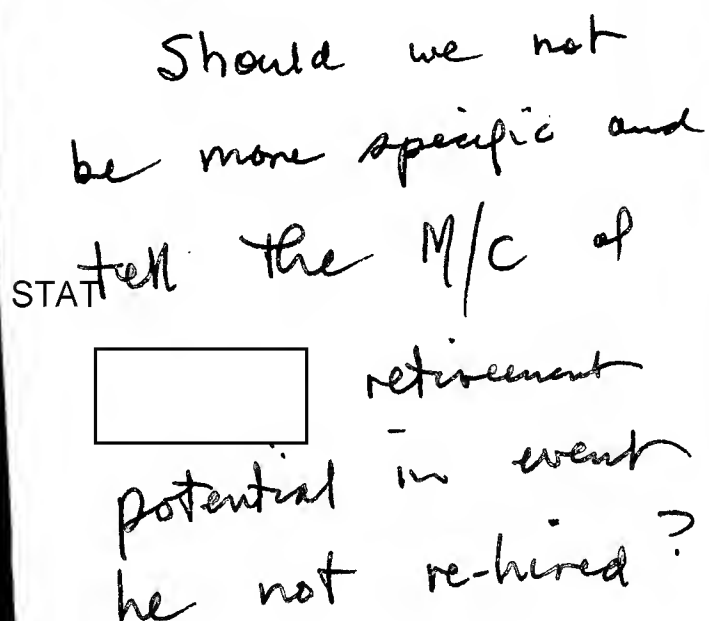 Should we not
be more specific and
STAT tell the M/C of
retirement
potential in event
he not re-hired?